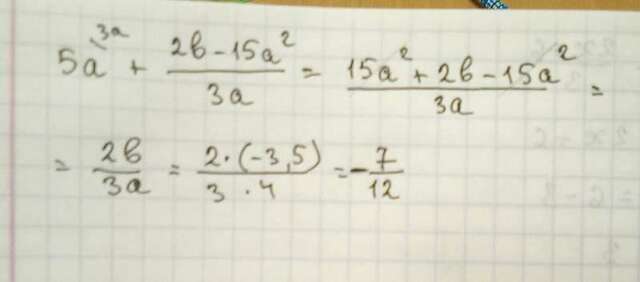 5a^(3a + (2b - 15a²)/(3a) = (15a² + 2b - 15a²)/(3a) =
= (2b)/(3a) = (2·(-3,5))/(3·4) = -7/12